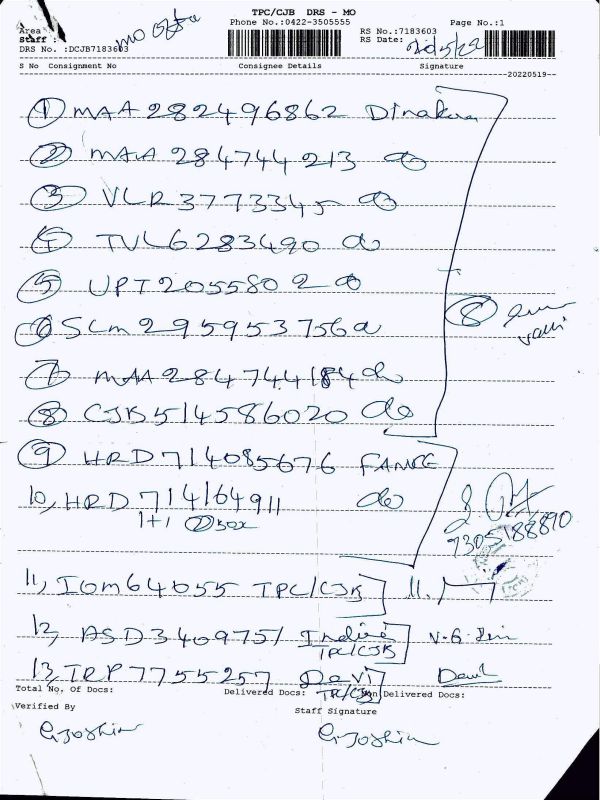 TPC/CJB DRS - MO
Phone No.:0422-3505555
Page No.:1
Area
Staff :
mo
DRS No. :DCJB7183603
RS No.:7183603
RS Date:
S No Consignment No Consignee Details Signature
20220519
1 MAA 282496862 Dinakara
2 MAA 284744213 do
3 VLR 3773345 do
4 TVL6283490 do
5 UPT 2055802 do
6 SLM 295953756 do
7 MAA 284744184 do
8 CJB514586020 do
8
9 HRD 714085676 FAMKE
10, HRD 714164911 do
1+1 2 Box
9305188890
11, IOM64055 TPC/CJB 11.
12, ASD3409751 Indira
TPC/CJB
13, TRP7755257 Devi
TPC/CJB
Total No. Of Docs: Delivered Docs: Non Delivered Docs:
Verified By Staff Signature
G. Joshin G. Joshin